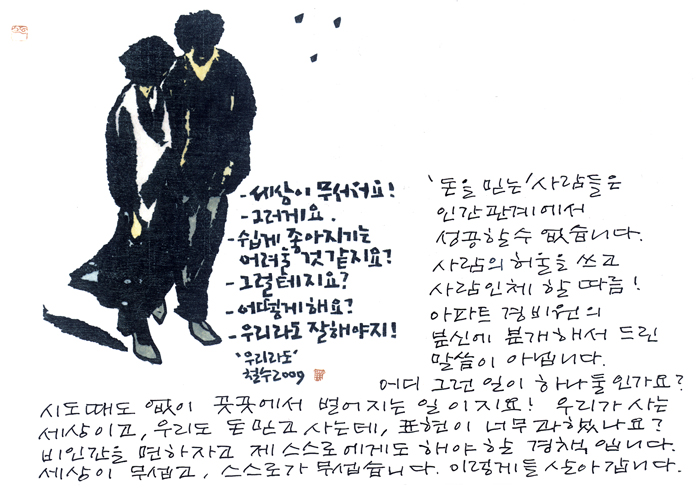 - 세상이 무서워요!
- 그러게요.
- 쉽게 좋아지기는
어려울 것 같지요?
- 그럴 테지요?
- 어떻게 해요?
- 우리라도 잘해야지!
'우리라도'
철수 2009
'돈을 믿는' 사람들은
인간관계에서
성공할 수 없습니다.
사람의 허울을 쓰고
사람인체 할 따름!
아파트 경비원의
분신에 분개해서 드린
말씀이 아닙니다.
어디 그런 일이 하나 둘인가요?
시도 때도 없이 곳곳에서 벌어지는 일이지요! 우리가 사는
세상이고, 우리도 돈 믿고 사는데, 표현이 너무 과했나요?
비인간을 면하자고 제 스스로에게도 해야 할 경책입니다.
세상이 무섭고, 스스로가 무섭습니다. 이렇게들 살아갑니다.